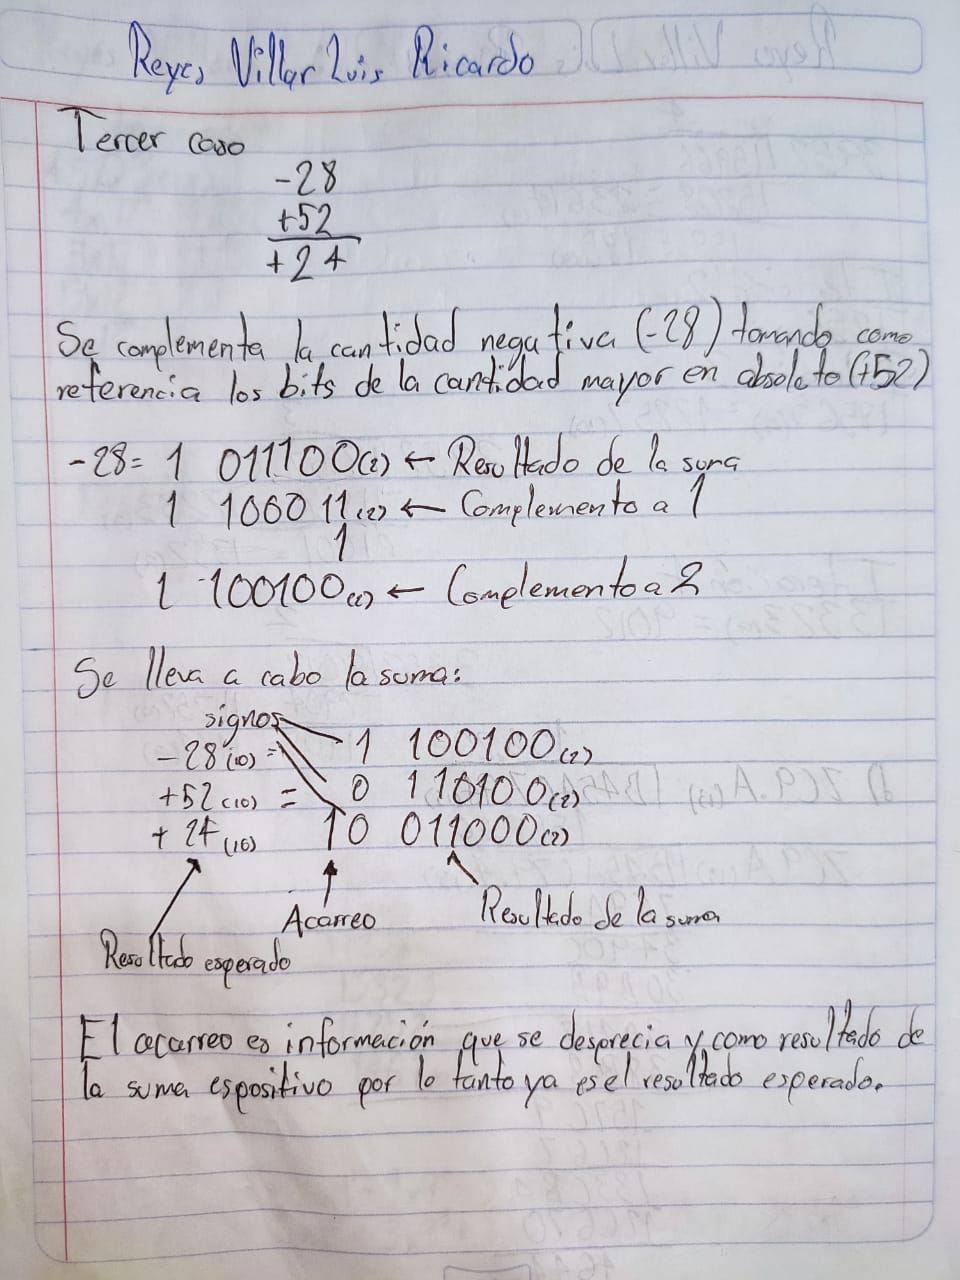 Reyes Villar Luis Ricardo
Tercer caso
-28
+52
+24
Se complementa la cantidad negativa (-28) tomando como
referencia los bits de la cantidad mayor en absoluto (+52)
-28= 1 011100(2) ← Resultado de la suma
1 100011(2) ← Complemento a 1
1
1 100100(2) ← Complemento a 2
Se lleva a cabo la suma:
signos
-28(10) = 1 100100(2)
+52(10) = 0 110100(2)
+ 24(10) 10 011000(2)
Acarreo
Resultado de la suma
Resultado esperado
El acarreo es información que se desprecia y como resultado de
la suma es positivo por lo tanto ya es el resultado esperado.